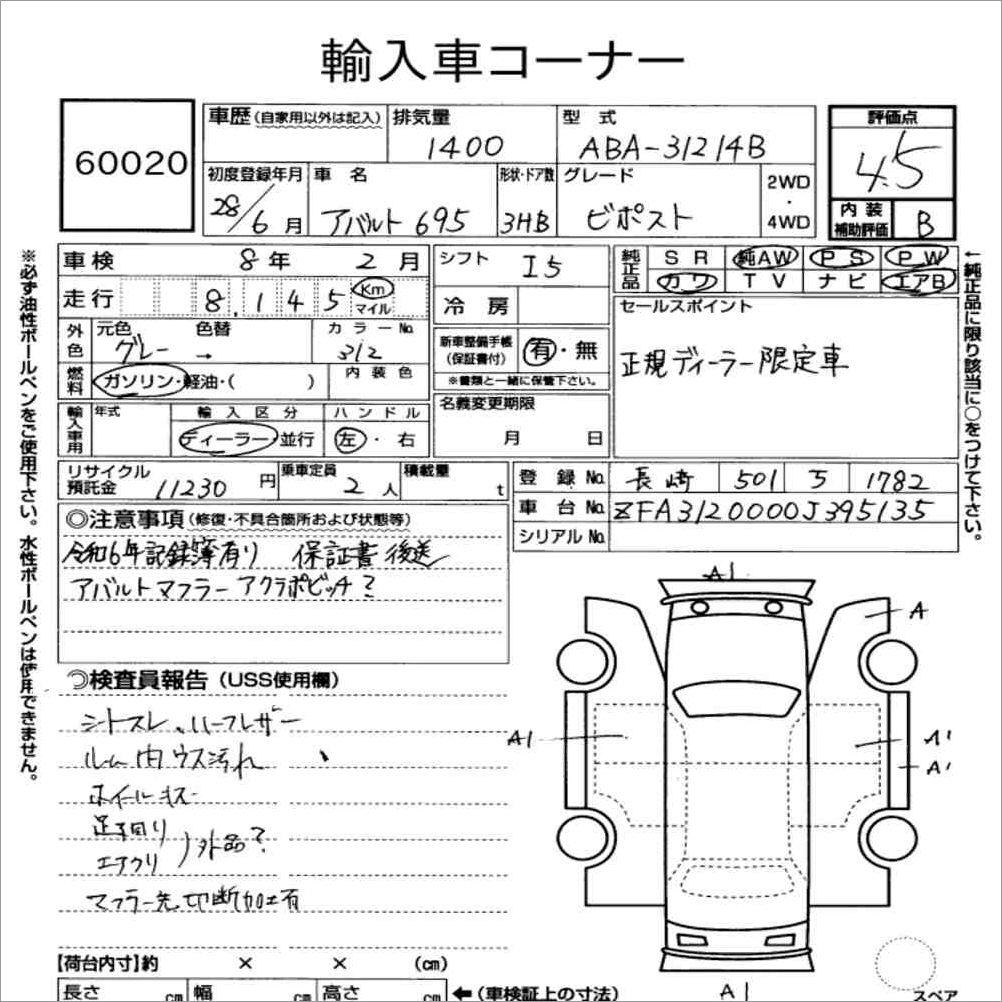 輸入車コーナー
60020
車歴(自家用以外は記入)
排気量
1400
型式
ABA-31214B
評価点
4.5
初度登録年月
28/6月
車名
アバルト695
形状・ドア数
3HB
グレード
ビポスト
2WD・4WD
内装補助評価
B
※必ず油性ボールペンをご使用下さい。水性ボールペンは使用できません。
車検 8年 2月
走行 8,145 Km マイル
外色 元色 グレー 色替 → カラーNo. 312
燃料 ガソリン・軽油・( ) 内装色
輸入車用 年式 輸入区分 ディーラー・並行 ハンドル 左・右
シフト I5
冷房
新車整備手帳(保証書付) 有・無
※書類と一緒に保管下さい。
名義変更期限
月 日
純正品 SR 純AW PS PW
カワ TV ナビ エアB
セールスポイント
正規ディーラー限定車
←純正品に限り該当に○をつけて下さい。
リサイクル預託金 11230円
乗車定員 2人
積載量 t
登録No. 長崎 501 5 1782
車台No. ZFA3120000J395135
シリアルNo.
◎注意事項(修復・不具合箇所および状態等)
令和6年記録簿有り 保証書後送
アバルトマフラー アクラポビッチ?
◎検査員報告(USS使用欄)
シートスレ、ハーフレザー
ルーム内ウス汚れ
ホイールキズ
足廻り
エアクリ
)外品?
マフラー先切断加工有
A1
A
A1
A1
A1
A1
スペア
【荷台内寸】約 × × (cm)
長さ cm 幅 cm 高さ cm ←(車検証上の寸法)